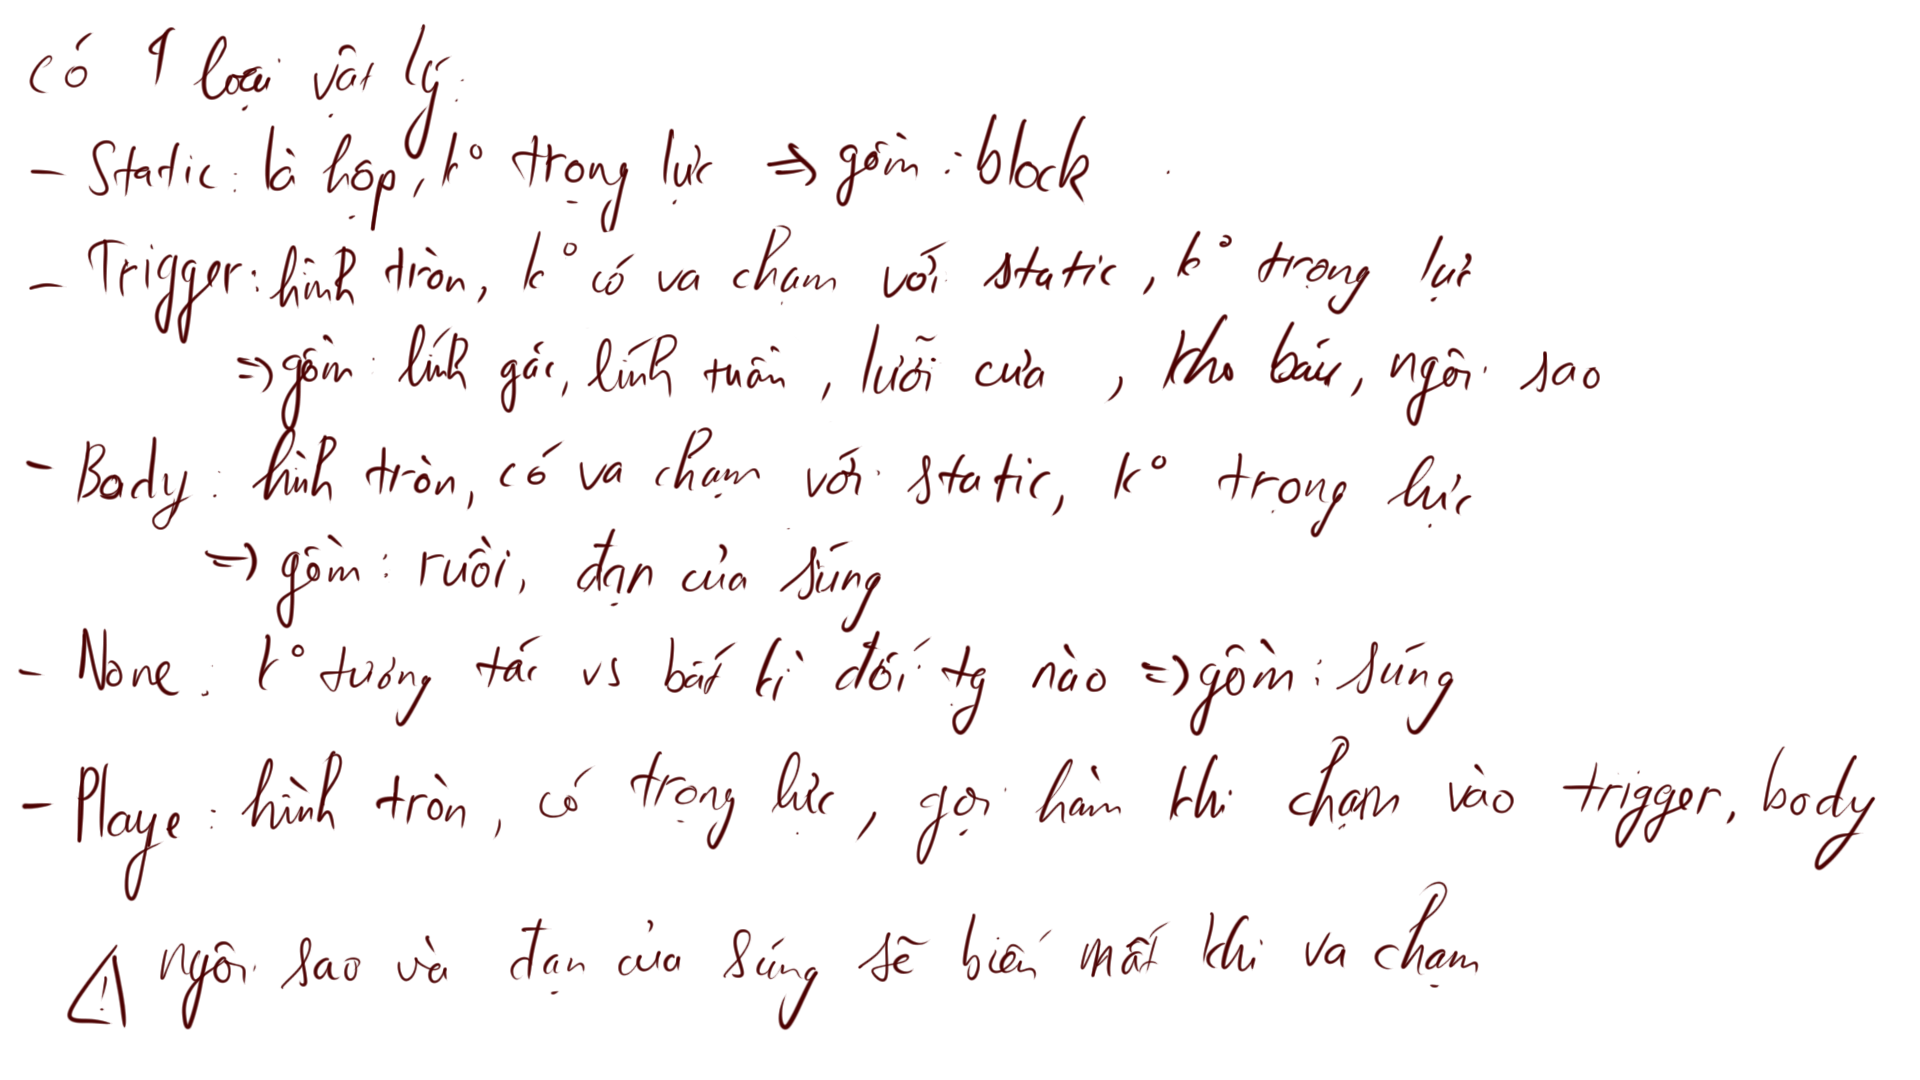 có 4 loại vật lý:
- Static: là hộp, k° trọng lực => gồm: block
- Trigger: hình tròn, k° có va chạm với static, k° trọng lực
=> gồm: lính gác, lính tuần, lưỡi cưa, kho báu, ngôi sao
- Body: hình tròn, có va chạm với static, k° trọng lực
=> gồm: ruồi, đạn của súng
- None: k° tương tác vs bất kì đối tg nào => gồm: súng
- Playe: hình tròn, có trọng lực, gọi hàm khi chạm vào trigger, body
⚠ ngôi sao và đạn của súng sẽ biến mất khi va chạm